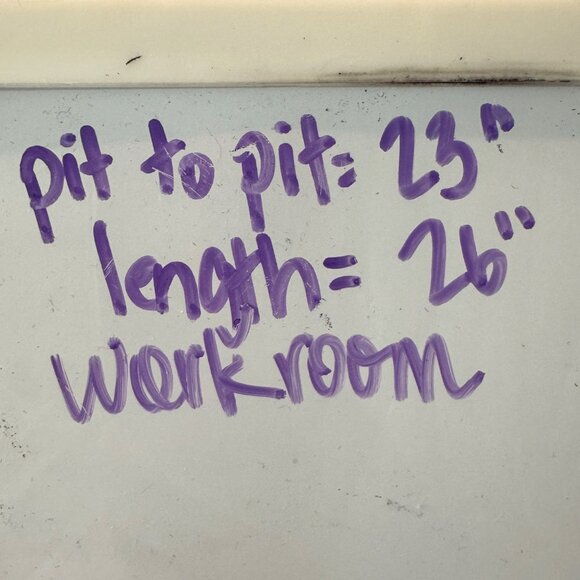 pit to pit= 23"
length= 26"
workroom